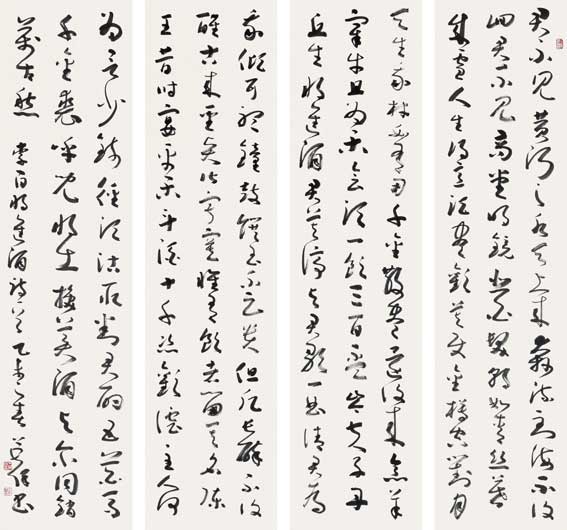 君不見黃河之水天上來奔流到海不復
回君不見高堂明鏡悲白髮朝如青絲暮
成雪人生得意須盡歡莫使金樽空對月
天生我材必有用千金散盡還復來烹羊
宰牛且為樂會須一飲三百杯岑夫子丹
丘生將進酒君莫停與君歌一曲請君為
我傾耳聽鐘鼓饌玉不足貴但願長醉不復
醒古來聖賢皆寂寞惟有飲者留其名陳
王昔時宴平樂斗酒十千恣歡謔主人何
為言少錢徑須沽取對君酌五花馬
千金裘呼兒將出換美酒與爾同銷
萬古愁 李白將進酒詩